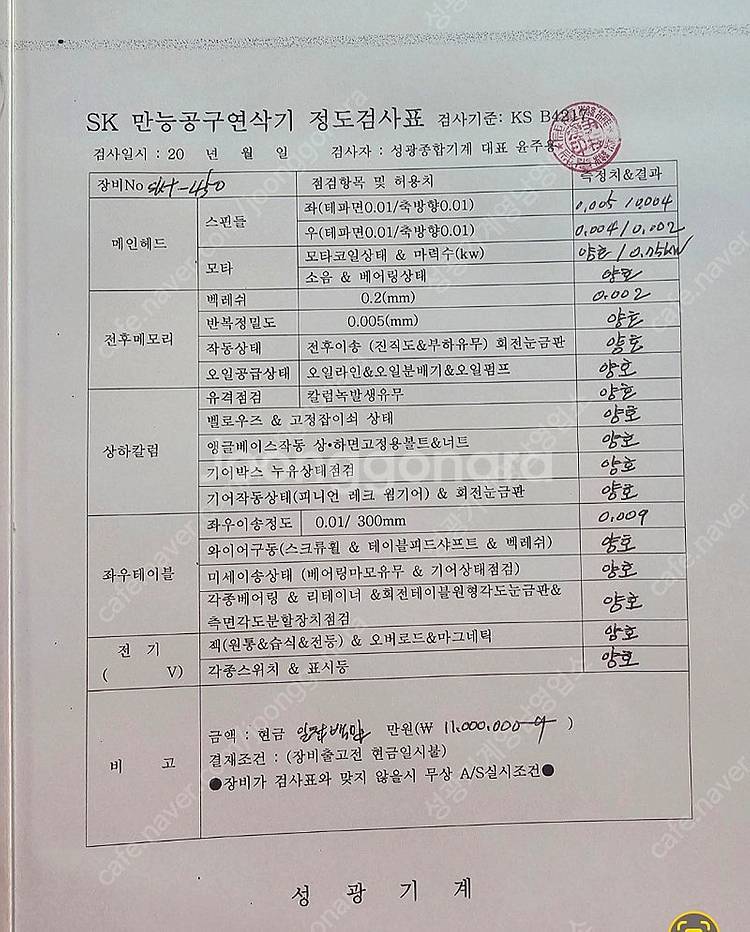 SK 만능공구연삭기 정도검사표 검사기준: KS B4217
검사일시 : 20 년 월 일 검사자 : 성광종합기계 대표 윤주용
장비No SH-450 점검항목 및 허용치 측정치&결과
메인헤드 스핀들 좌(테파면0.01/축방향0.01) 0.005 / 0.004
우(테파면0.01/축방향0.01) 0.004 / 0.002
모타 모타코일상태 & 마력수(kw) 양호 / 0.75kW
소음 & 베어링상태 양호
전후메모리 벡레쉬 0.2(mm) 0.002
반복정밀도 0.005(mm) 양호
작동상태 전후이송 (진직도&부하유무) 회전눈금판 양호
오일공급상태 오일라인&오일분배기&오일펌프 양호
상하칼럼 유격점검 칼럼녹발생유무 양호
벨로우즈 & 고정잡이쇠 상태 양호
앵글베이스작동 상•하면고정용볼트&너트 양호
기이박스 누유상태점검 양호
기어작동상태(피니언 레크 웜기어) & 회전눈금판 양호
좌우테이블 좌우이송정도 0.01/ 300mm 0.009
와이어구동(스크류휠 & 테이블피드샤프트 & 벡레쉬) 양호
미세이송상태 (베어링마모유무 & 기어상태점검) 양호
각종베어링 & 리테이너 &회전테이블원형각도눈금판&
측면각도분할장치점검 양호
전 기 잭(원통&습식&전등) & 오버로드&마그네틱 양호
( V) 각종스위치 & 표시등 양호
비 고
금액 : 현금 일천백만 만원(₩ 11.000.000 )
결재조건 : (장비출고전 현금일시불)
●장비가 검사표와 맞지 않을시 무상 A/S실시조건●
성 광 기 계
joonggonara
cafe.naver.com/joonggonara